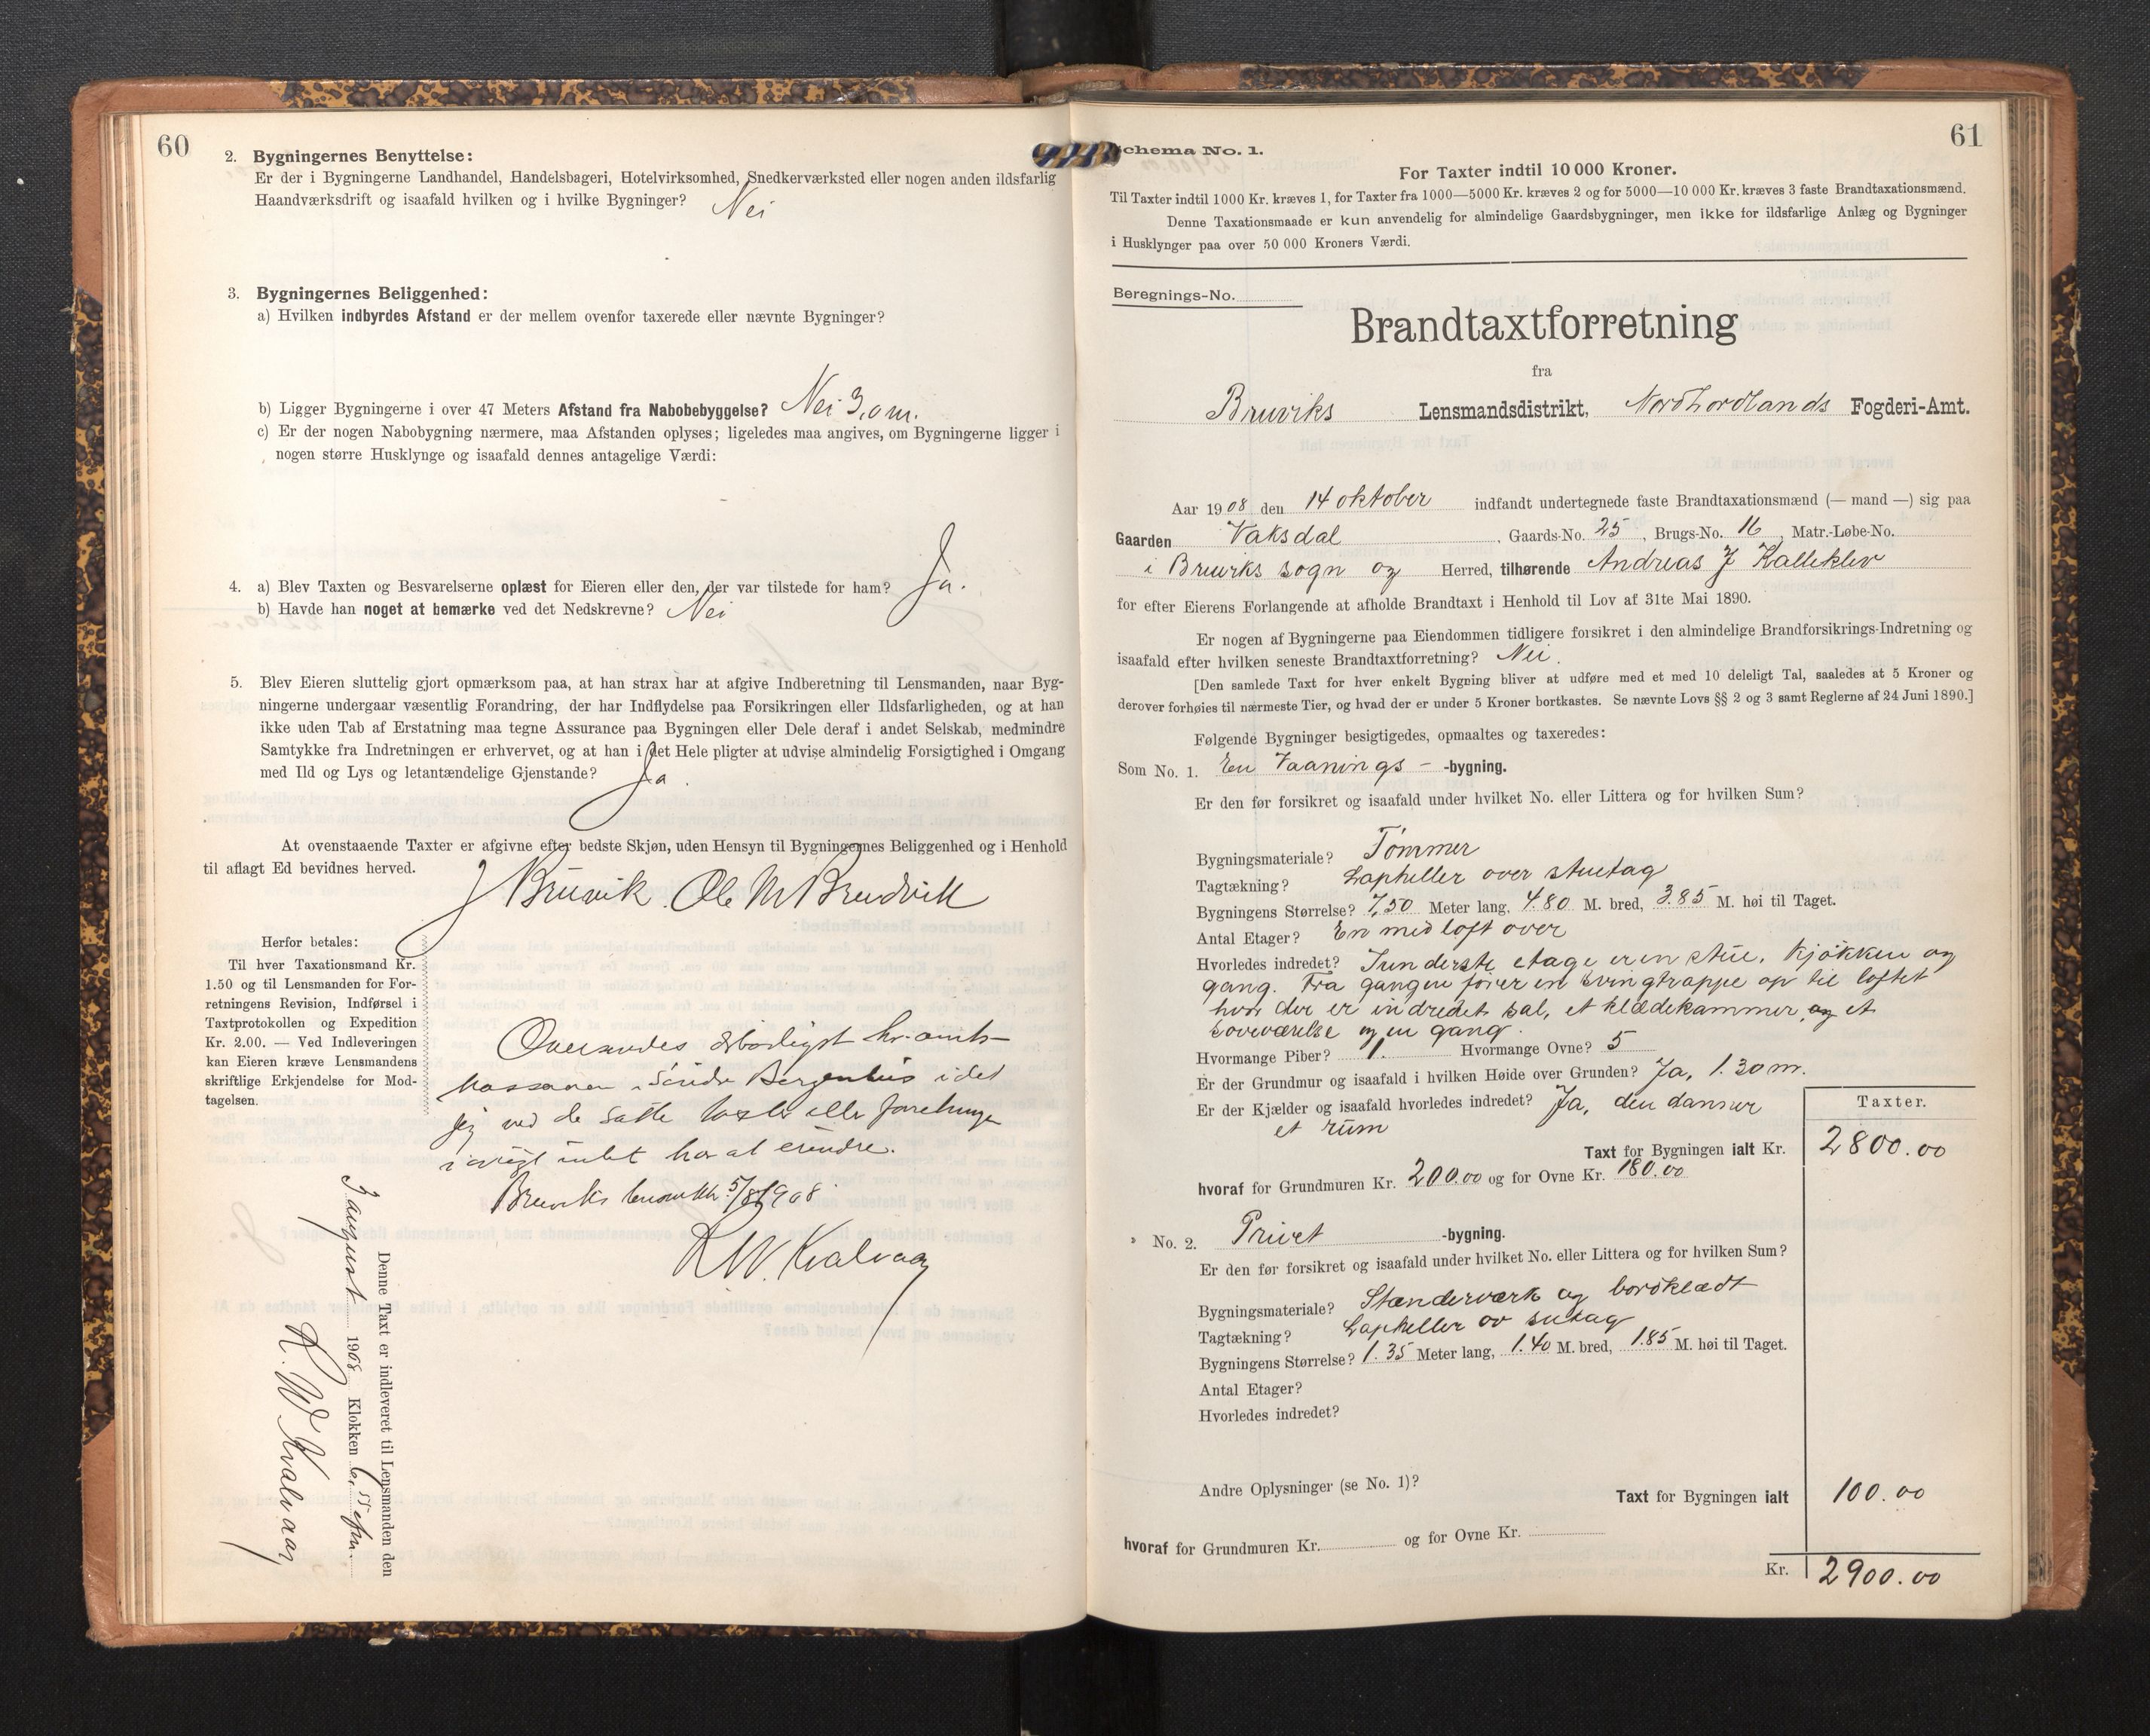 60
2. Bygningernes Benyttelse:
Er der i Bygningerne Landhandel, Handelsbageri, Hotelvirksomhed, Snedkerværksted eller nogen anden ildsfarlig
Haandværksdrift og isaafald hvilken og i hvilke Bygninger? Nei
3. Bygningernes Beliggenhed:
a) Hvilken indbyrdes Afstand er der mellem ovenfor taxerede eller nævnte Bygninger?
b) Ligger Bygningerne i over 47 Meters Afstand fra Nabobebyggelse? Nei 3,0 m.
c) Er der nogen Nabobygning nærmere, maa Afstanden oplyses; ligeledes maa angives, om Bygningerne ligger i
nogen større Husklynge og isaafald dennes antagelige Værdi:
4. a) Blev Taxten og Besvarelserne oplæst for Eieren eller den, der var tilstede for ham? Ja.
b) Havde han noget at bemærke ved det Nedskrevne? Nei
5. Blev Eieren sluttelig gjort opmærksom paa, at han strax har at afgive Indberetning til Lensmanden, naar Byg-
ningerne undergaar væsentlig Forandring, der har Indflydelse paa Forsikringen eller Ildsfarligheden, og at han
ikke uden Tab af Erstatning maa tegne Assurance paa Bygningen eller Dele deraf i andet Selskab, medmindre
Samtykke fra Indretningen er erhvervet, og at han i det Hele pligter at udvise almindelig Forsigtighed i Omgang
med Ild og Lys og letantændelige Gjenstande? Ja
At ovenstaaende Taxter er afgivne efter bedste Skjøn, uden Hensyn til Bygningernes Beliggenhed og i Henhold
til aflagt Ed bevidnes herved.
J Bruvik. Ole M Bruvik
Herfor betales:
Til hver Taxationsmand Kr.
1.50 og til Lensmanden for For-
retningens Revision, Indførsel i
Taxtprotokollen og Expedition
Kr. 2.00. — Ved Indleveringen
kan Eieren kræve Lensmandens
skriftlige Erkjendelse for Mod-
tagelsen.
Oversendes ærbødigst hr. amts-
kassereren i Søndre Bergenhus idet
jeg ved de satte taxter eller forretningen
iøvrigt intet har at erindre.
Bruviks 5/8 1908
K W. Kvalvaag
Denne Taxt er indleveret til Lensmanden den
3 august 1908 Klokken 6, efm.
K. W Kvalvaag
61
Schema No. 1.
For Taxter indtil 10 000 Kroner.
Til Taxter indtil 1000 Kr. kræves 1, for Taxter fra 1000—5000 Kr. kræves 2 og for 5000—10 000 Kr. kræves 3 faste Brandtaxationsmænd.
Denne Taxationsmaade er kun anvendelig for almindelige Gaardsbygninger, men ikke for ildsfarlige Anlæg og Bygninger
i Husklynger paa over 50 000 Kroners Værdi.
Beregnings-No.
Brandtaxtforretning
fra
Bruviks Lensmandsdistrikt, Nordhordlands Fogderi-Amt.
Aar 1908 den 14 oktober indfandt undertegnede faste Brandtaxationsmænd (— mand —) sig paa
Gaarden Vaksdal, Gaards-No. 25, Brugs-No. 16, Matr.-Løbe-No.
i Bruviks sogn og Herred, tilhørende Andreas J Kalleklev
for efter Eierens Forlangende at afholde Brandtaxt i Henhold til Lov af 31te Mai 1890.
Er nogen af Bygningerne paa Eiendommen tidligere forsikret i den almindelige Brandforsikrings-Indretning og
isaafald efter hvilken seneste Brandtaxtforretning? Nei.
[Den samlede Taxt for hver enkelt Bygning bliver at udføre med et med 10 deleligt Tal, saaledes at 5 Kroner og
derover forhøies til nærmeste Tier, og hvad der er under 5 Kroner bortkastes. Se nævnte Lovs §§ 2 og 3 samt Reglerne af 24 Juni 1890.]
Følgende Bygninger besigtigedes, opmaaltes og taxeredes:
Som No. 1. En Vaanings - -bygning.
Er den før forsikret og isaafald under hvilket No. eller Littera og for hvilken Sum?
Bygningsmateriale? Tømmer
Tagtækning? Lapheller over stutag
Bygningens Størrelse? 7,50 Meter lang, 4.80 M. bred, 3.85 M. høi til Taget.
Antal Etager? En med loft over
Hvorledes indredet? I underste etage er en stue, kjøkken og
gang. Fra gangen fører en svingtrappe op til loftet
hvor der er indredet sal, et klædekammer, og et
soveværelse og en gang.
Hvormange Piber? 1. Hvormange Ovne? 5
Er der Grundmur og isaafald i hvilken Høide over Grunden? Ja, 1.30 m.
Er der Kjælder og isaafald hvorledes indredet? Ja, den danner
et rum
Taxter.
Taxt for Bygningen ialt Kr. 2800.00
hvoraf for Grundmuren Kr. 200.00 og for Ovne Kr. 180.00
No. 2. Privet -bygning.
Er den før forsikret og isaafald under hvilket No. eller Littera og for hvilken Sum?
Bygningsmateriale? Stænderværk og bordklædt
Tagtækning? Lapheller ov sutag
Bygningens Størrelse? 1.35 Meter lang, 1.40 M. bred, 1.85 M. høi til Taget.
Antal Etager?
Hvorledes indredet?
Andre Oplysninger (se No. 1)?
Taxt for Bygningen ialt 100.00
hvoraf for Grundmuren Kr. og for Ovne Kr.
Kr. 2900.00